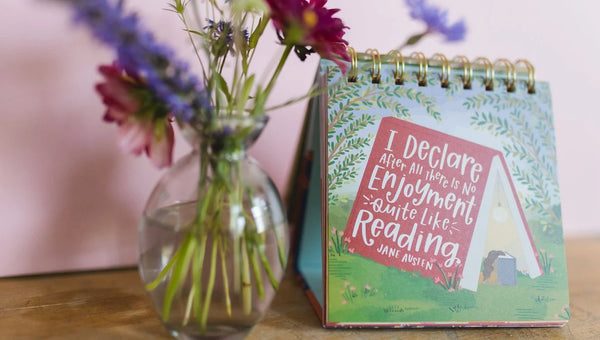 I Declare
After All there is No
Enjoyment
Quite Like
Reading
JANE AUSTEN